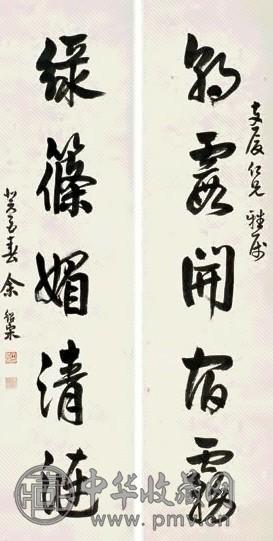 辰仁兄 雅屬
朝霞開宿霧
綠篠媚清漣
癸亥春 余紹宋
中华收藏网
www.pmv.cn